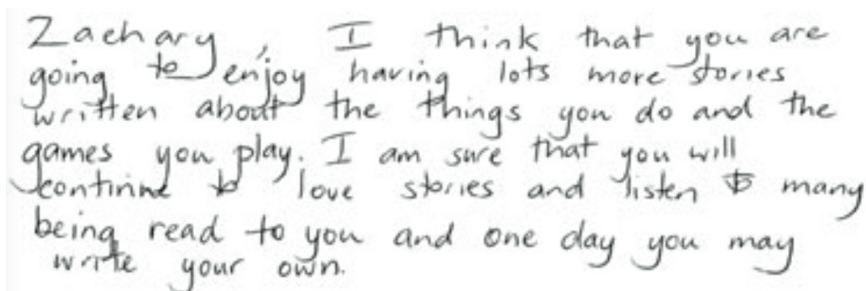 Zachary, I think that you are
going to enjoy having lots more stories
written about the things you do and the
games you play. I am sure that you will
continue to love stories and listen to many
being read to you and one day you may
write your own.